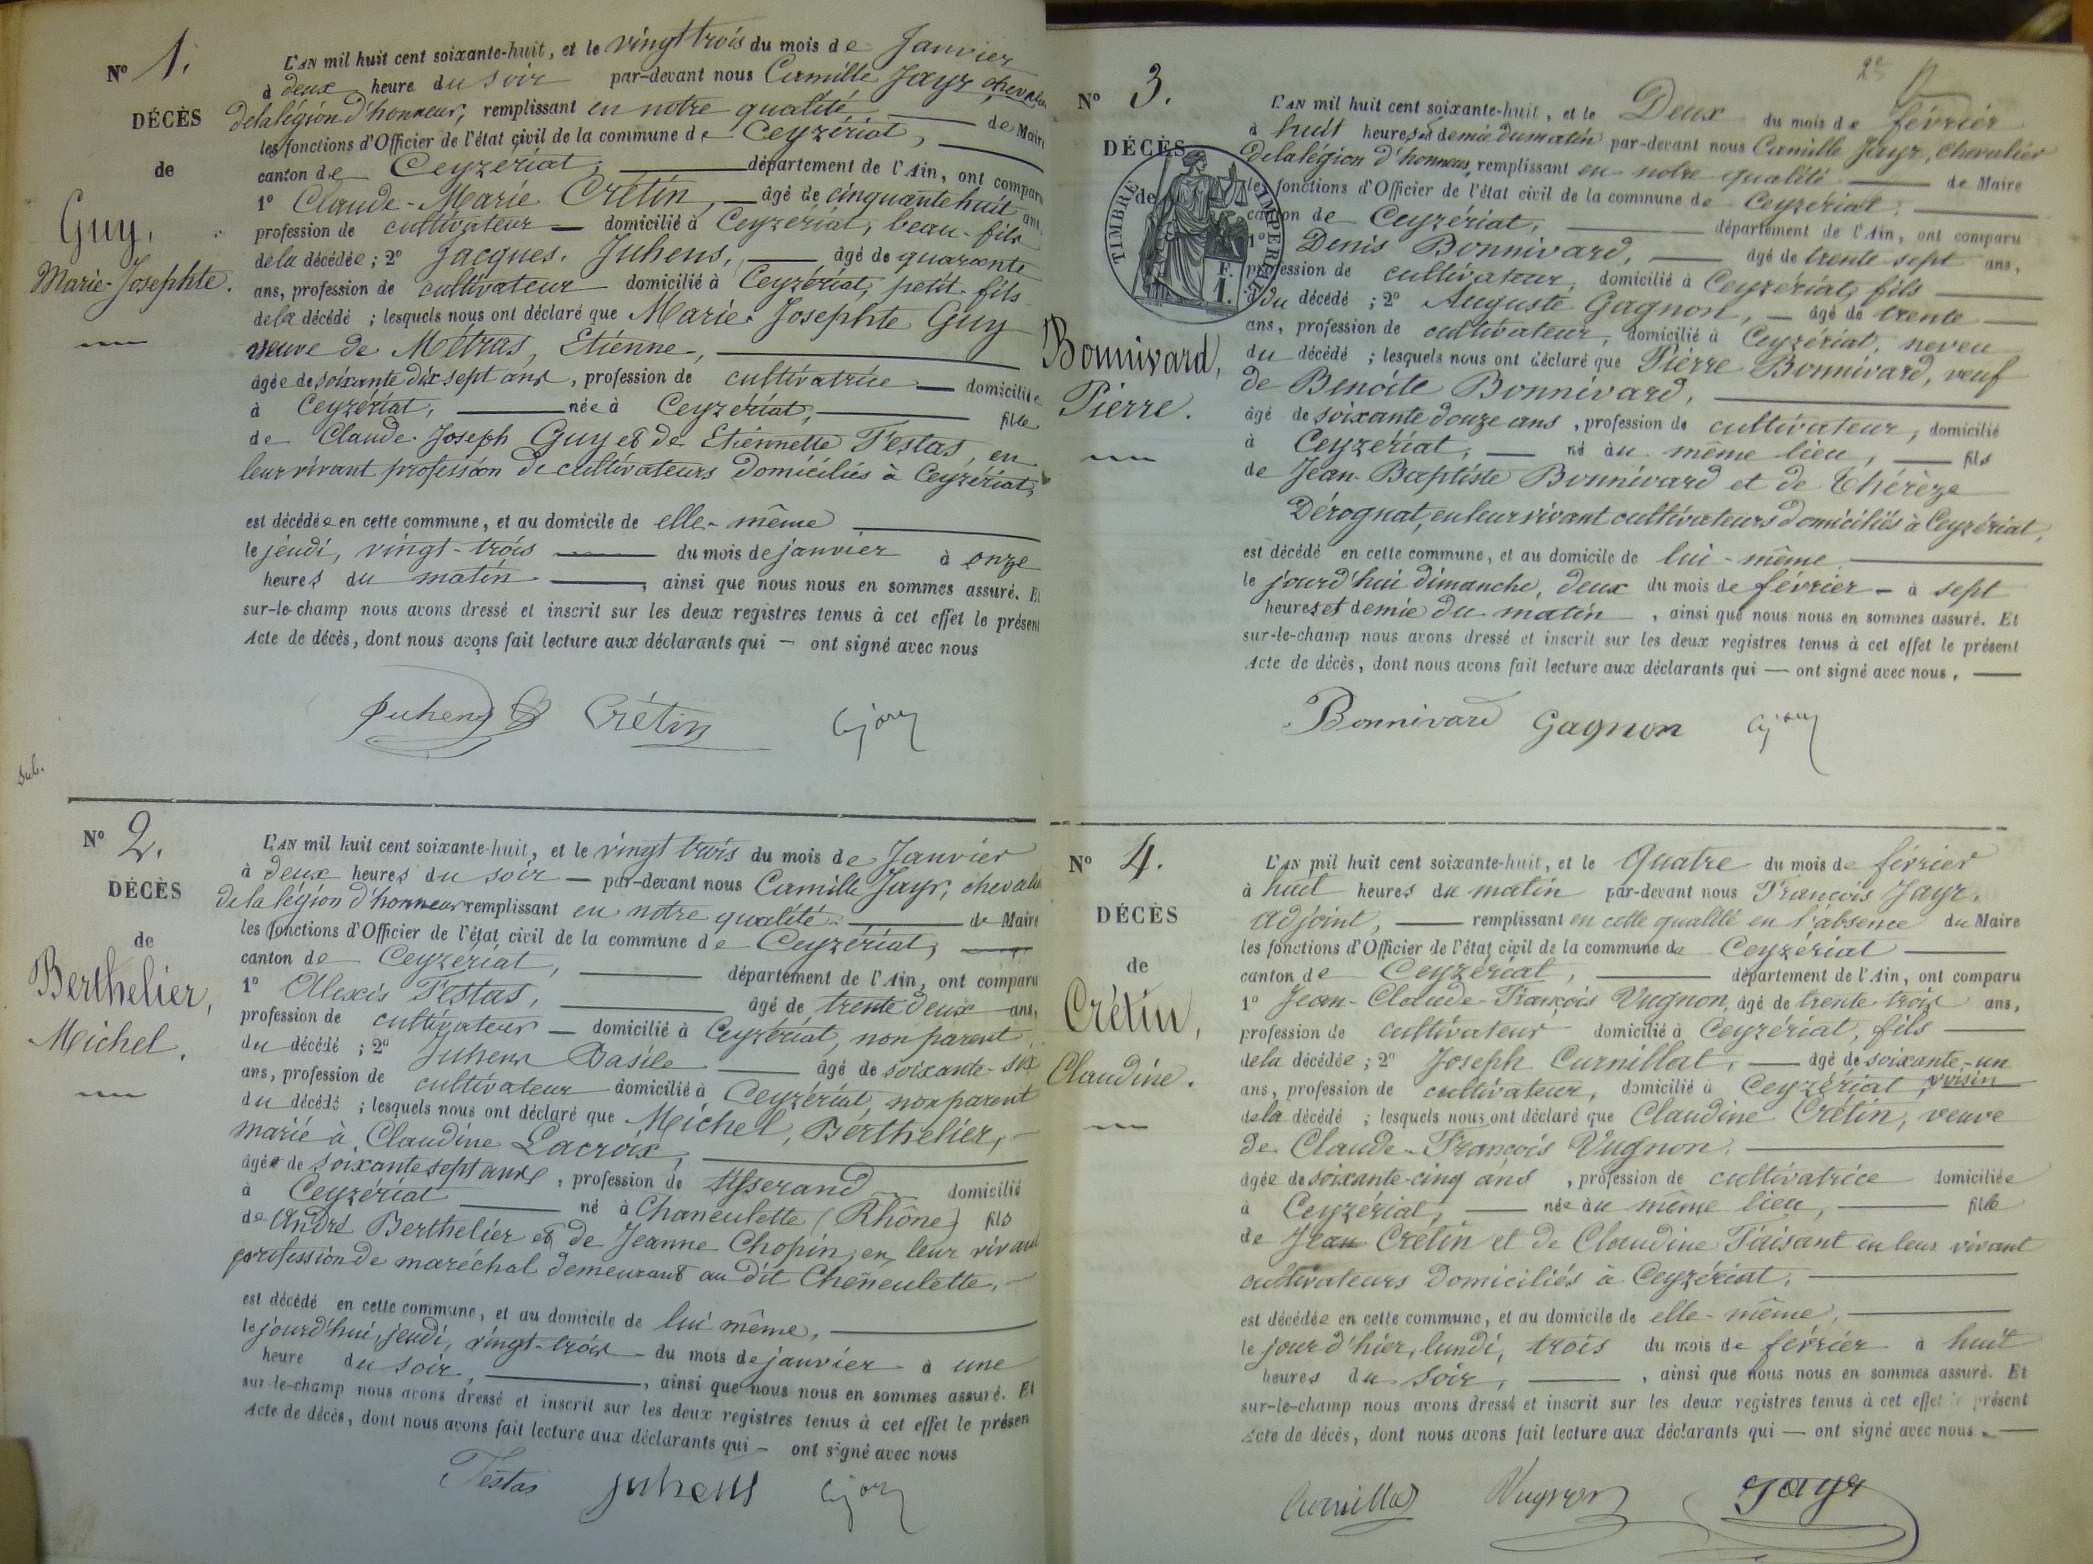 N° 1.
DÉCÈS
de
Guy,
Marie-Josephte.
L'AN mil huit cent soixante-huit, et le vingt trois du mois de Janvier
à deux heure du soir par-devant nous Camille Jayr cheval
de la légion d'honneur, remplissant en notre qualité de Maire
les fonctions d'Officier de l'état civil de la commune de Ceyzériat,
canton de Ceyzériat, département de l'Ain, ont comparu
1° Claude-Marie Crétin, âgé de cinquante huit ans,
profession de cultivateur domicilié à Ceyzériat, beau-fils
de la décédée; 2° Jacques Juhens, âgé de quarante
ans, profession de cultivateur domicilié à Ceyzériat, petit-fils
de la décédé; lesquels nous ont déclaré que Marie-Josephte Guy
veuve de Métras, Etienne,
âgée de soixante dix sept ans, profession de cultivatrice domiciliée
à Ceyzériat, née à Ceyzériat, fille
de Claude-Joseph Guy et de Etiennette Festas, en
leur vivant profession de cultivateurs domiciliés à Ceyzériat,
est décédée en cette commune, et au domicile de elle-même
le jeudi, vingt-trois du mois de janvier à onze
heures du matin, ainsi que nous nous en sommes assuré. Et
sur-le-champ nous avons dressé et inscrit sur les deux registres tenus à cet effet le présent
Acte de décès, dont nous avons fait lecture aux déclarants qui — ont signé avec nous
Juhens Crétin Cjayr
Sub.
N° 2.
DÉCÈS
de
Berthelier,
Michel.
L'AN mil huit cent soixante-huit, et le vingt trois du mois de Janvier
à deux heures du soir — par-devant nous Camille Jayr, cheval
de la légion d'honneur remplissant en notre qualité de Maire
les fonctions d'Officier de l'état civil de la commune de Ceyzériat,
canton de Ceyzériat, département de l'Ain, ont comparu
1° Alexis Festas, âgé de trente deux ans,
profession de cultivateur — domicilié à Ceyzériat, non parent
du décédé; 2° Juhens Basile âgé de soixante-six
ans, profession de cultivateur domicilié à Ceyzériat, non parent
du décédé; lesquels nous ont déclaré que Michel, Berthelier,
marié à Claudine Lacroix,
âgée de soixante sept ans, profession de tisserand domicilié
à Ceyzériat né à Chaneulette (Rhône) fils
de André Berthelier et de Jeanne Chopin, en leur vivant
profession de maréchal demeurant au dit Chéneulette,
est décédé en cette commune, et au domicile de lui même,
le jourd'hui, jeudi, vingt-trois du mois de janvier à une
heure du soir, ainsi que nous nous en sommes assuré. Et
sur-le-champ nous avons dressé et inscrit sur les deux registres tenus à cet effet le présen
Acte de décès, dont nous avons fait lecture aux déclarants qui — ont signé avec nous
Festas Juhens Cjayr
N° 3.
DÉCÈS
de
TIMBRE IMPERIAL
F.
1.
Bonnivard,
Pierre.
L'AN mil huit cent soixante-huit, et le Deux du mois de février
à huit heures et demie du matin par-devant nous Camille Jayr, chevalier
de la légion d'honneur, remplissant en notre qualité de Maire
les fonctions d'Officier de l'état civil de la commune de Ceyzériat,
canton de Ceyzériat, département de l'Ain, ont comparu
1° Denis Bonnivard, âgé de trente sept ans,
profession de cultivateur, domicilié à Ceyzériat, fils
du décédé; 2° Auguste Gagnon, âgé de trente
ans, profession de cultivateur, domicilié à Ceyzériat, neveu
du décédé; lesquels nous ont déclaré que Pierre Bonnivard, veuf
de Benoite Bonnivard,
âgé de soixante douze ans, profession de cultivateur, domicilié
à Ceyzériat, né au même lieu, fils
de Jean-Baptiste Bonnivard et de Thérèze
Dérognat, en leur vivant cultivateurs domiciliés à Ceyzériat,
est décédé en cette commune, et au domicile de lui-même
le jourd'hui dimanche, deux du mois de février à sept
heures et demie du matin, ainsi que nous nous en sommes assuré. Et
sur-le-champ nous avons dressé et inscrit sur les deux registres tenus à cet effet le présent
Acte de décès, dont nous avons fait lecture aux déclarants qui — ont signé avec nous.
Bonnivard Gagnon Cjayr
N° 4.
DÉCÈS
de
Crétin,
Claudine.
L'AN mil huit cent soixante-huit, et le Quatre du mois de février
à huit heures du matin par-devant nous François Jayr,
adjoint, remplissant en cette qualité en l'absence du Maire
les fonctions d'Officier de l'état civil de la commune de Ceyzériat
canton de Ceyzériat, département de l'Ain, ont comparu
1° Jean-Claude-François Vugnon, âgé de trente trois ans,
profession de cultivateur domicilié à Ceyzériat, fils
de la décédée; 2° Joseph Curnillat, âgé de soixante-un
ans, profession de cultivateur, domicilié à Ceyzériat, voisin
de la décédé; lesquels nous ont déclaré que Claudine Crétin, veuve
de Claude-François Vugnon,
âgée de soixante-cinq ans, profession de cultivatrice domiciliée
à Ceyzériat, née au même lieu, fille
de Jean Crétin et de Claudine Faisant en leur vivant
cultivateurs domiciliés à Ceyzériat,
est décédée en cette commune, et au domicile de elle-même,
le jour d'hier, lundi, trois du mois de février à huit
heures du soir, ainsi que nous nous en sommes assuré. Et
sur-le-champ nous avons dressé et inscrit sur les deux registres tenus à cet effet le présent
Acte de décès, dont nous avons fait lecture aux déclarants qui — ont signé avec nous.
Curnillat Vugnon Jayr